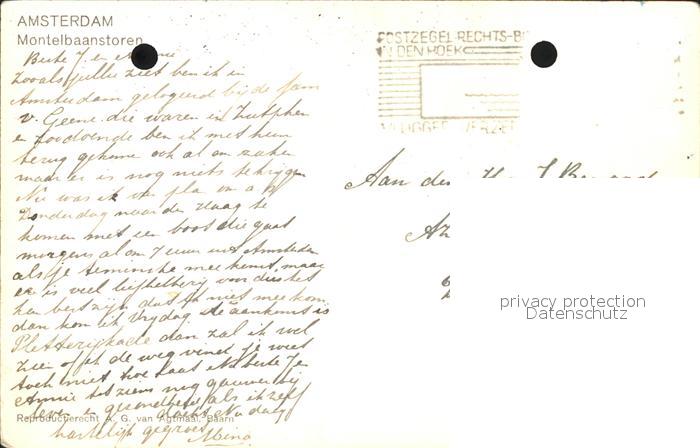 AMSTERDAM
Montelbaanstoren
Beste J. en Annie
Zooals jullie ziet ben ik in
Amsterdam gelogeerd bij de fam
v. Geene die waren in Zutphen
en zoodoende ben ik met hun
terug gekome ook al om zaken
maar er is nog niets te krijgen
Nu was ik van pla om a.s.
Donderdag naar den Haag te
komen met een boot die gaat
morgens al om 7 uur uit Amsterdam
als je tenminste mee komt, maar
er is veel liefhebberij voor dus het
kan best zijn dat ik niet mee kom
dan kom ik Vrijdag de aankomst is
Pletterijkade dan zal ik wel
zien of ik de weg vindt je weet
toch niet hoe laat Nu beste J en
Annie tot ziens nog gauw bij
leven en gezondheid als ik zelf
dacht Nu dag
hartelijk gegroet Mina
Reproductierecht A. G. van Agtmaal, Baarn
POSTZEGEL RECHTS-B
IN DEN HOEK
VLUGGER VERZE
Aan den H J
Az
privacy protection
Datenschutz